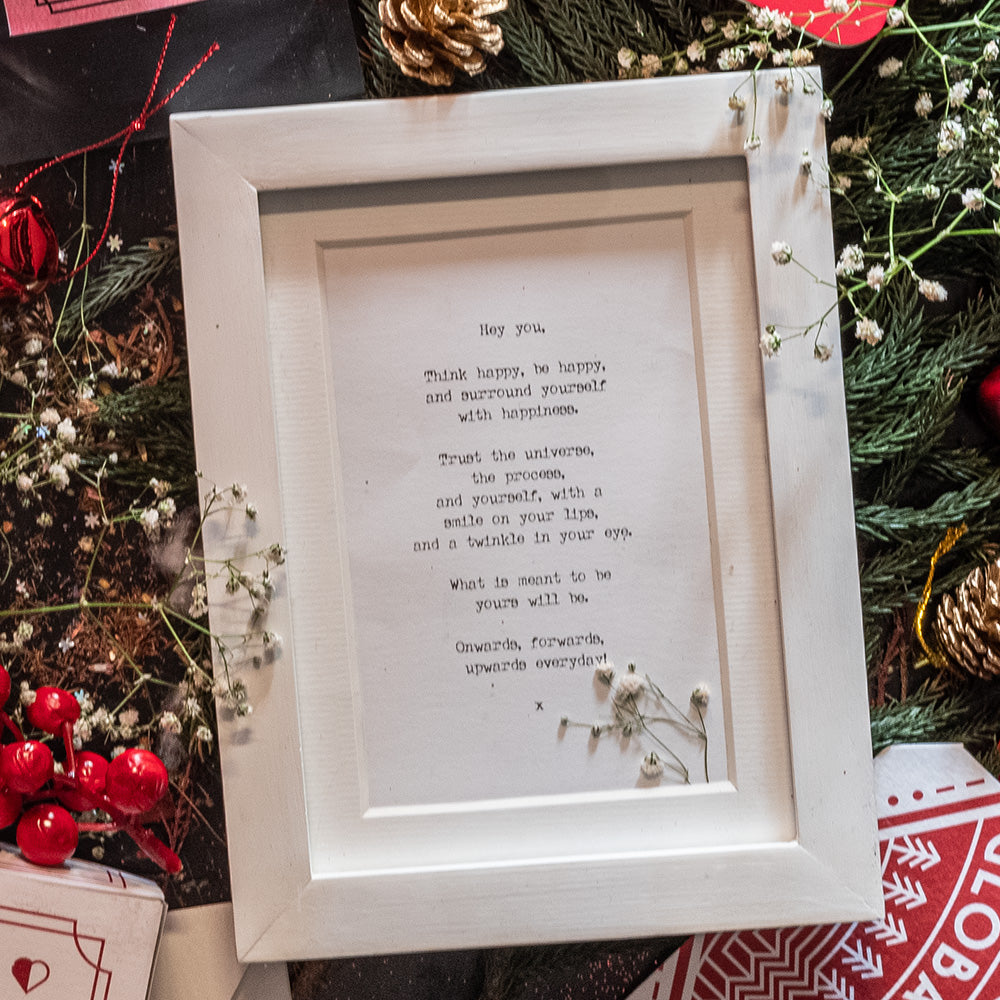 Hey you,
Think happy, be happy,
and surround yourself
with happiness.
Trust the universe,
the process,
and yourself, with a
smile on your lips,
and a twinkle in your eye.
What is meant to be
yours will be.
Onwards, forwards,
upwards everyday!
x